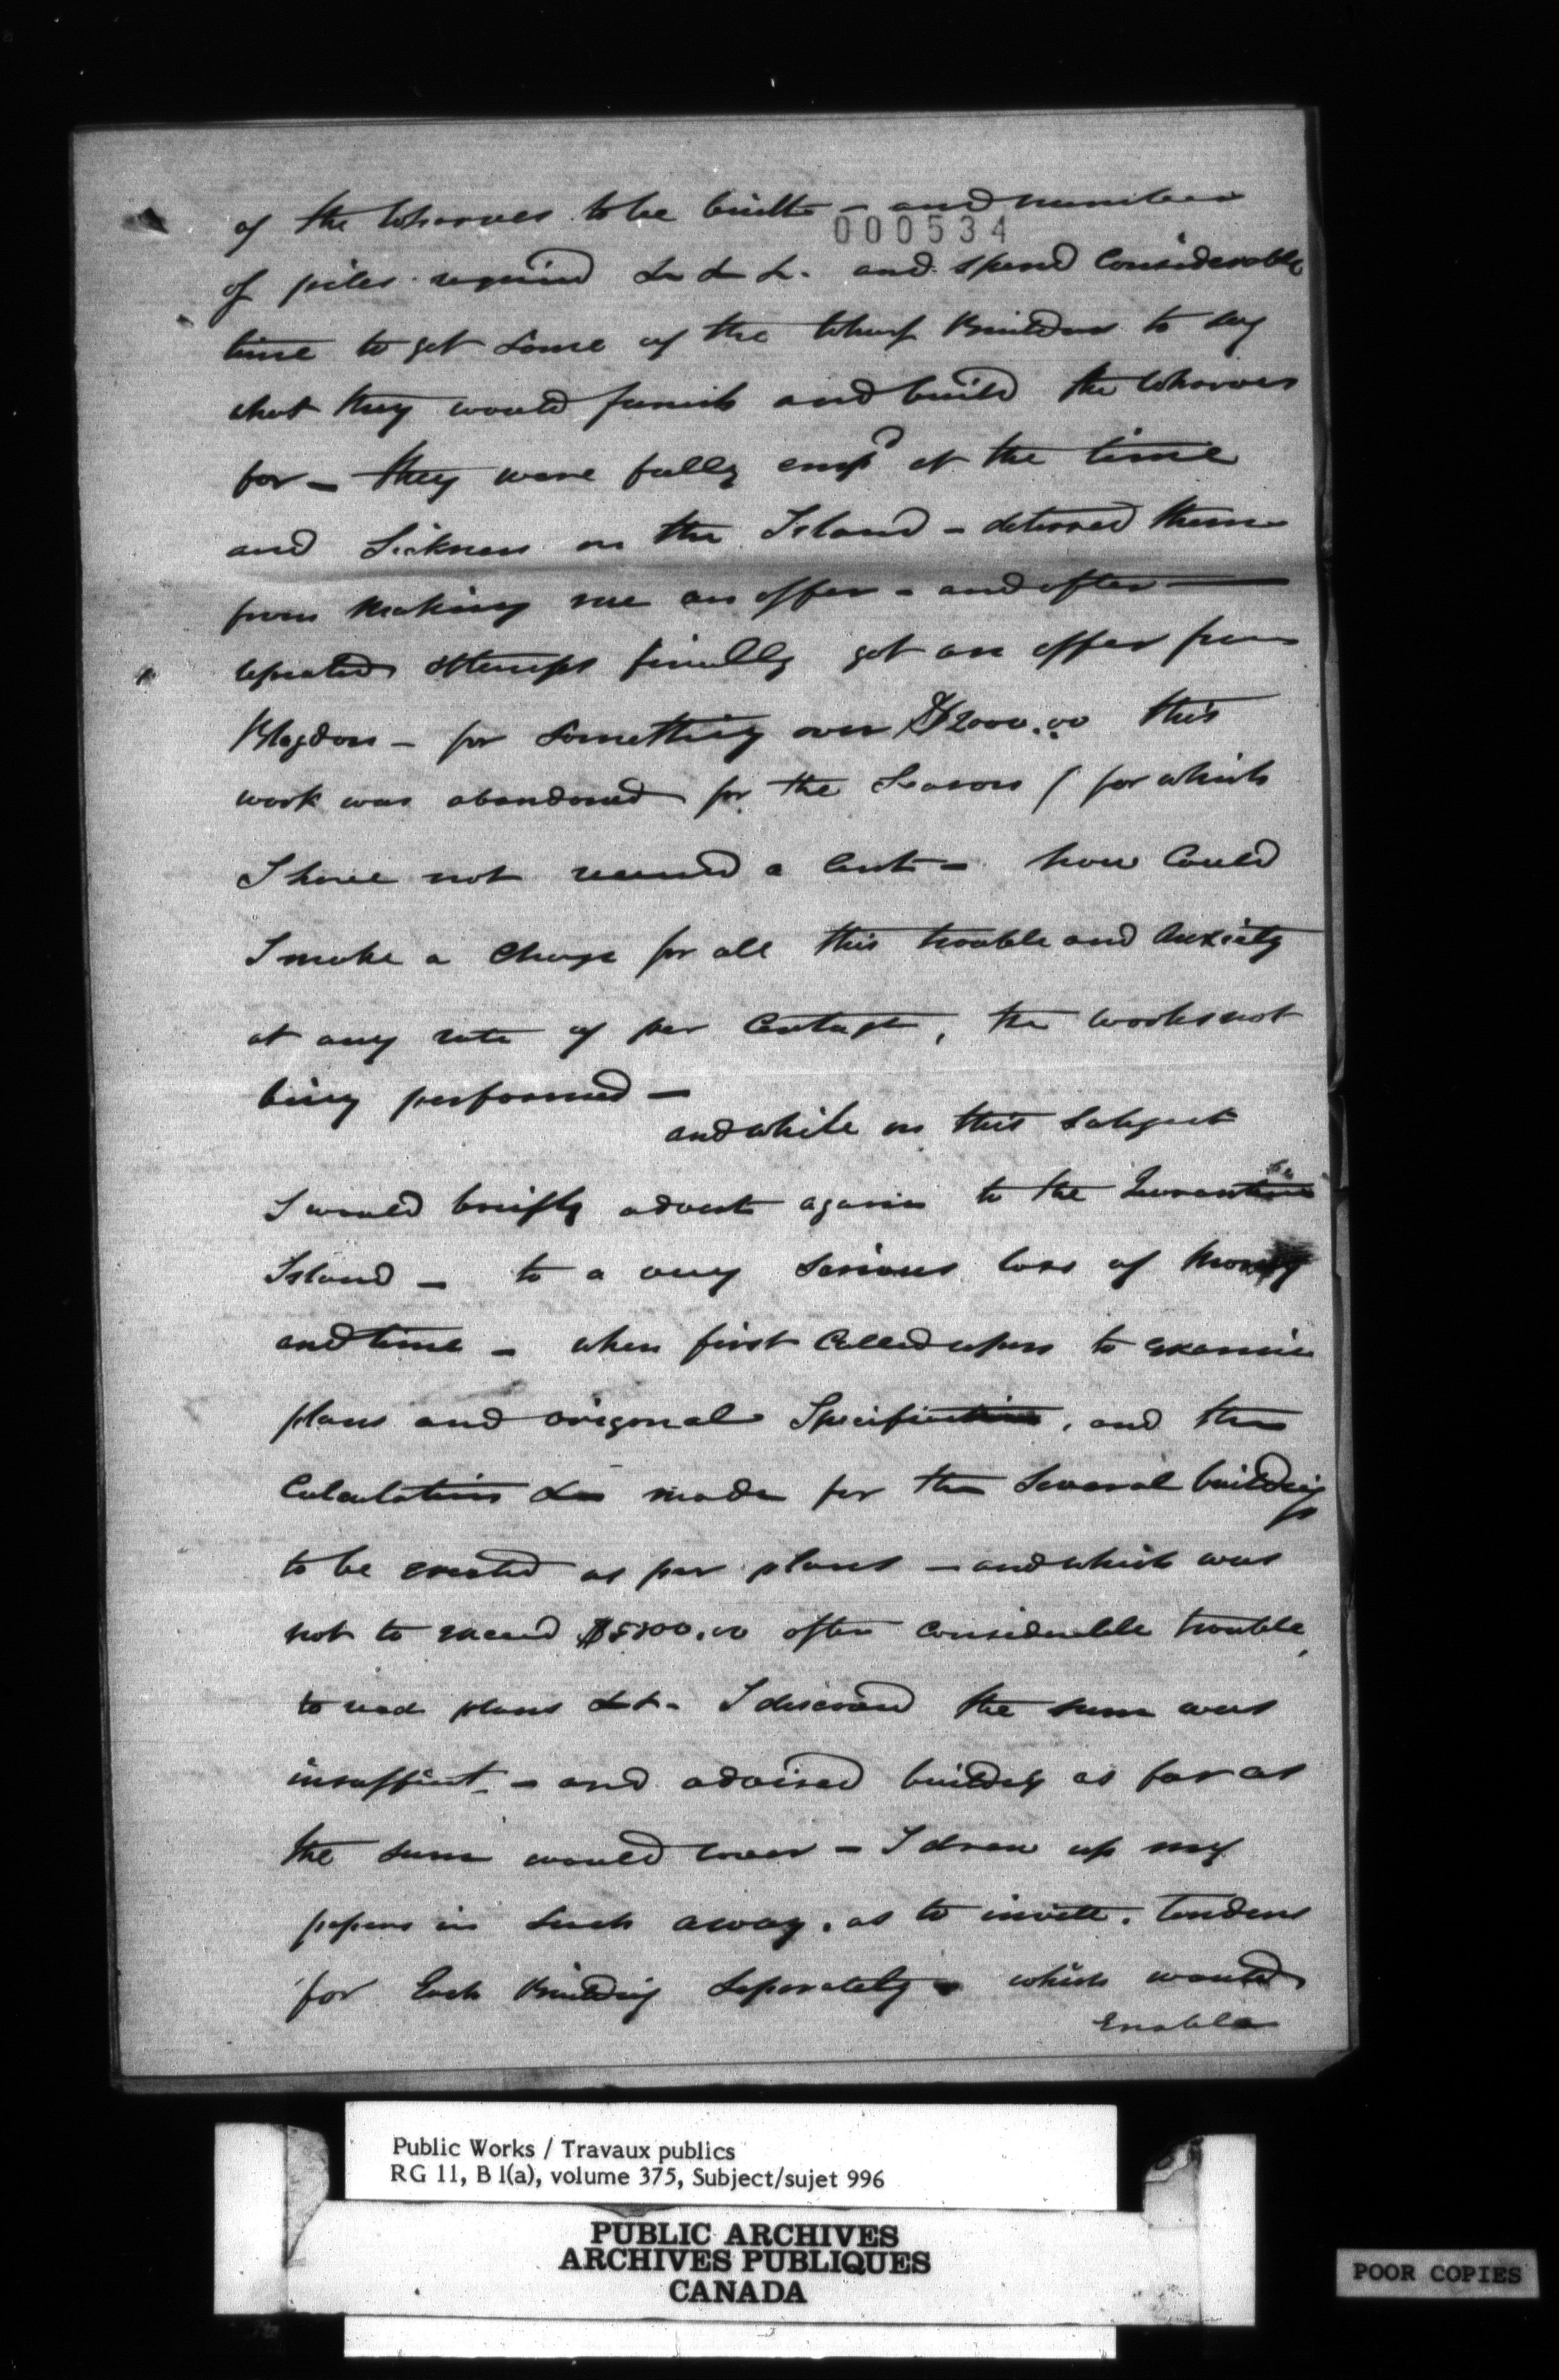 of the Wharves to be built - and number
000534
of piles required &c &c &c. and spend Considerable
time to get some of the Wharf Builders to say
what they would furnish and build the Wharves
for - they were fully emp'd at the time
and Sickness on the Island - deterred them
from making me an offer - and after
repeated attempts finally got an offer from
Blagdon - for something over $2000.00 this
work was abandoned for the Season / for which
I have not received a Cent - how Could
I make a Charge for all this trouble and Anxiety
at any rate of per Centage, the works not
being performed -
and while on this subject
I would briefly advert again to the Quarantine
Island - to a very serious loss of Money
and time - when first Called upon to examine
plans and origonal Specifications, and the
Calculations &c made for the Several buildings
to be erected as per plans - and which was
not to exceed $5800.00 after considerable trouble,
to read plans &c. I discovered the sum was
insufficient - and advised building as far as
the sum would cover - I drew up my
papers in such away, as to invite, tenders
for Each Building Separately - which would
Enable
Public Works / Travaux publics
RG 11, B 1(a), volume 375, Subject/sujet 996
PUBLIC ARCHIVES
ARCHIVES PUBLIQUES
CANADA
POOR COPIES